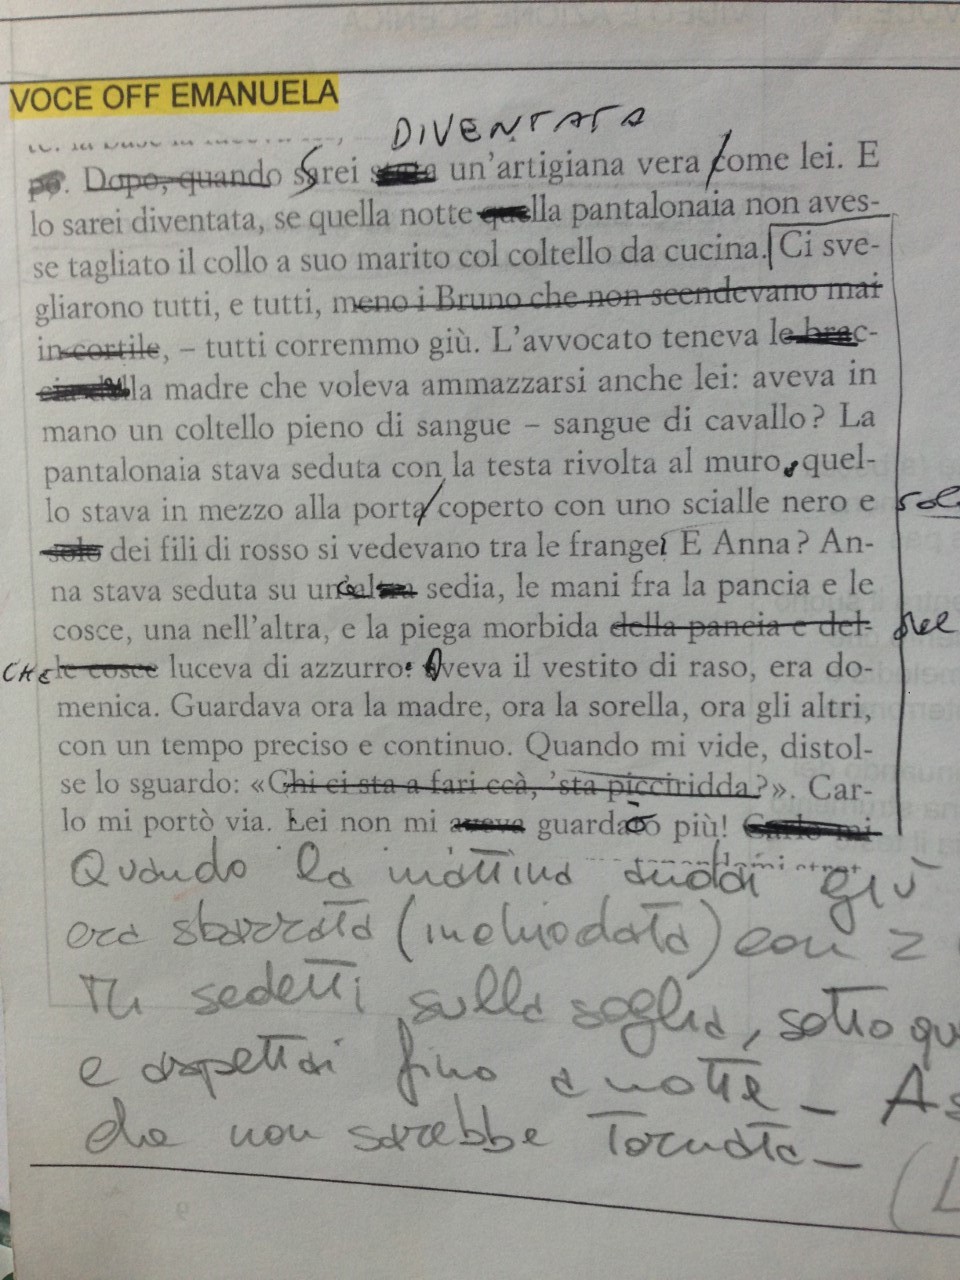 VOCE OFF EMANUELA
DIVENTATA
po. Dopo, quando sarei stata un'artigiana vera come lei. E
lo sarei diventata, se quella notte quella pantalonaia non aves-
se tagliato il collo a suo marito col coltello da cucina. Ci sve-
gliarono tutti, e tutti, meno i Bruno che non scendevano mai
in cortile, – tutti corremmo giù. L'avvocato teneva le brac-
cia della madre che voleva ammazzarsi anche lei: aveva in
mano un coltello pieno di sangue – sangue di cavallo? La
pantalonaia stava seduta con la testa rivolta al muro, quel-
lo stava in mezzo alla porta coperto con uno scialle nero e
solo dei fili di rosso si vedevano tra le frange. E Anna? An-
na stava seduta su un'altra sedia, le mani fra la pancia e le
cosce, una nell'altra, e la piega morbida della pancia e del-
CHE le cosce luceva di azzurro: aveva il vestito di raso, era do-
menica. Guardava ora la madre, ora la sorella, ora gli altri,
con un tempo preciso e continuo. Quando mi vide, distol-
se lo sguardo: «Chi ci sta a fari ccà, 'sta picciridda?». Car-
lo mi portò via. Lei non mi aveva guardato più! Carlo mi
Quando la mattina andai giù
era sbarrata (inchiodata) con 2
Mi sedetti sulla soglia, sotto
e aspettai fino a notte –
che non sarebbe tornata –